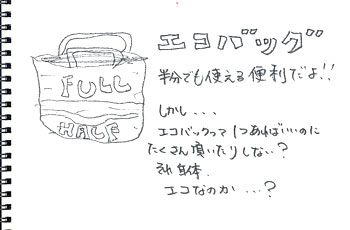 エコバッグ
FULL
HALF
半分でも使える便利だよ!!
しかし...
エコバックって1つあればいいのに
たくさん頂いたりしない?
それ自体、
エコなのか...?